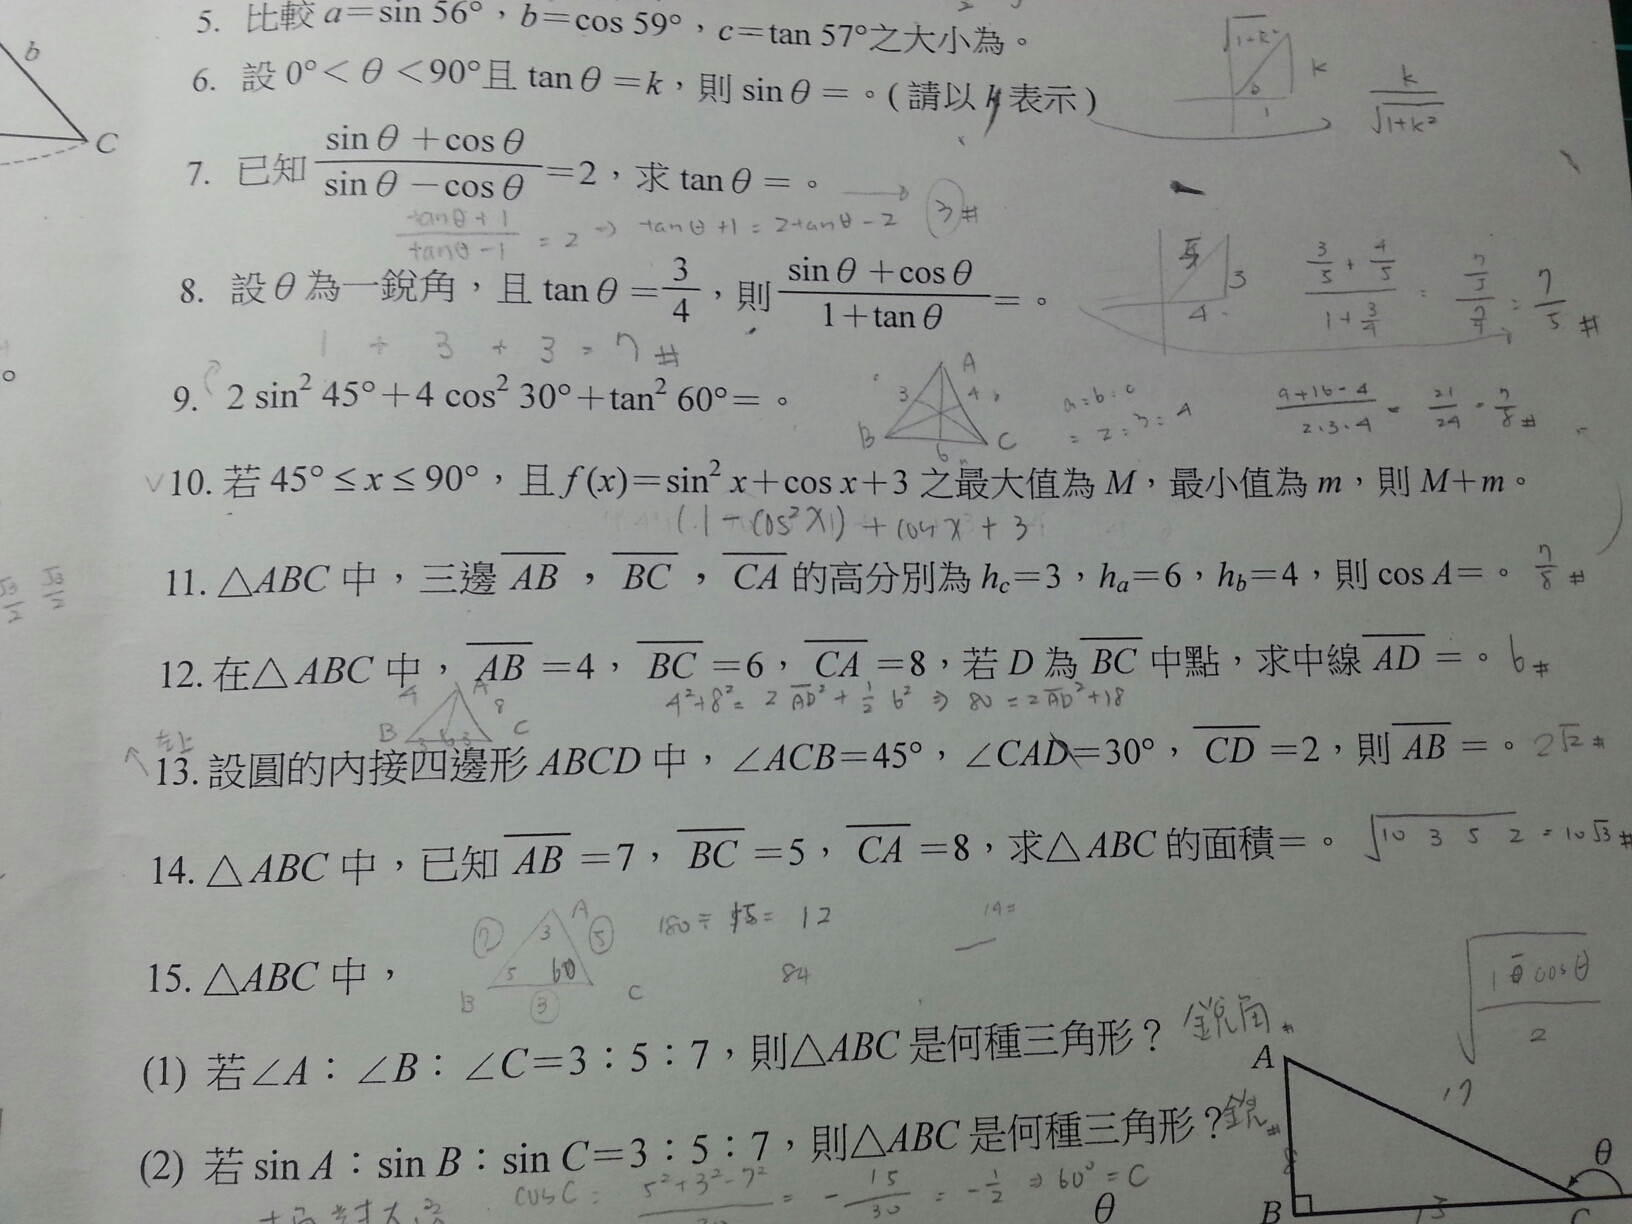 b
C
5. 比較 a=sin 56°,b=cos 59°,c=tan 57°之大小為。
6. 設 0°< θ <90°且 tan θ =k,則 sin θ = 。(請以 k 表示)
√1+k² k 1 θ
k/√1+k²
7. 已知 (sin θ +cos θ)/(sin θ −cos θ) =2,求 tan θ = 。 → 3 #
(tanθ+1)/(tanθ−1) = 2 → tanθ+1 = 2tanθ−2
8. 設 θ 為一銳角,且 tan θ = 3/4,則 (sin θ +cos θ)/(1+tan θ) = 。
5 3 4
(3/5 + 4/5)/(1+3/4) = (7/5)/(7/4) = 7/5 #
1 + 3 + 3 = 7 #
9. 2 sin² 45°+4 cos² 30°+tan² 60°= 。
A 3 4 B C 6
a:b:c = 2:3:4
(9+16−4)/(2·3·4) = 21/24 = 7/8 #
√3/2
10. 若 45° ≤ x ≤ 90°,且 f (x)=sin² x+cos x+3 之最大值為 M,最小值為 m,則 M+m。
(1−cos²x) + cos x + 3
11. △ABC 中,三邊 AB , BC , CA 的高分別為 hc=3,ha=6,hb=4,則 cos A= 。 7/8 #
12. 在△ABC 中, AB =4, BC =6, CA =8,若 D 為 BC 中點,求中線 AD = 。 6 #
4²+8² = 2 AD² + 1/2 6² ⇒ 80 = 2AD²+18
4 A 8 B 3 3 C
13. 設圓的內接四邊形 ABCD 中,∠ACB=45°,∠CAD=30°, CD =2,則 AB = 。 2√2 #
14. △ABC 中,已知 AB =7, BC =5, CA =8,求△ABC 的面積= 。 √10 3 5 2 = 10√3 #
180 ÷ 15 = 12
A 3 7 5 5 60 B 3 C
84
15. △ABC 中,
(1) 若∠A:∠B:∠C=3:5:7,則△ABC 是何種三角形? 銳角 #
(2) 若 sin A:sin B:sin C=3:5:7,則△ABC 是何種三角形? 銳 #
cos C = (5²+3²−7²)/30 = −15/30 = −1/2 ⇒ 60° = C
θ
A
17
8
B
C
θ